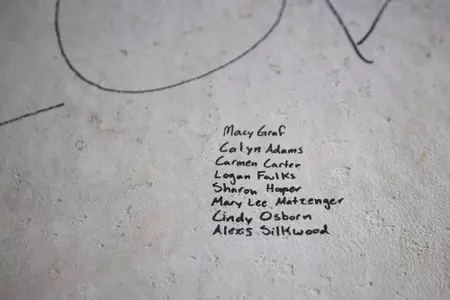 Macy Graf
Calyn Adams
Carmen Carter
Logan Faulks
Sharon Hooper
Mary Lee Matzenger
Cindy Osborn
Alexis Silkwood